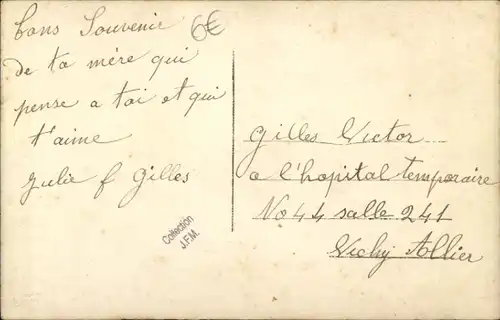 bons Souvenir
de ta mère qui
pense a toi et qui
t'aime
Julie f Gilles
6€
Gilles Victor
a l'hopital temporaire
No 44 salle 241
Vichy Allier
Collection
J.F.M.